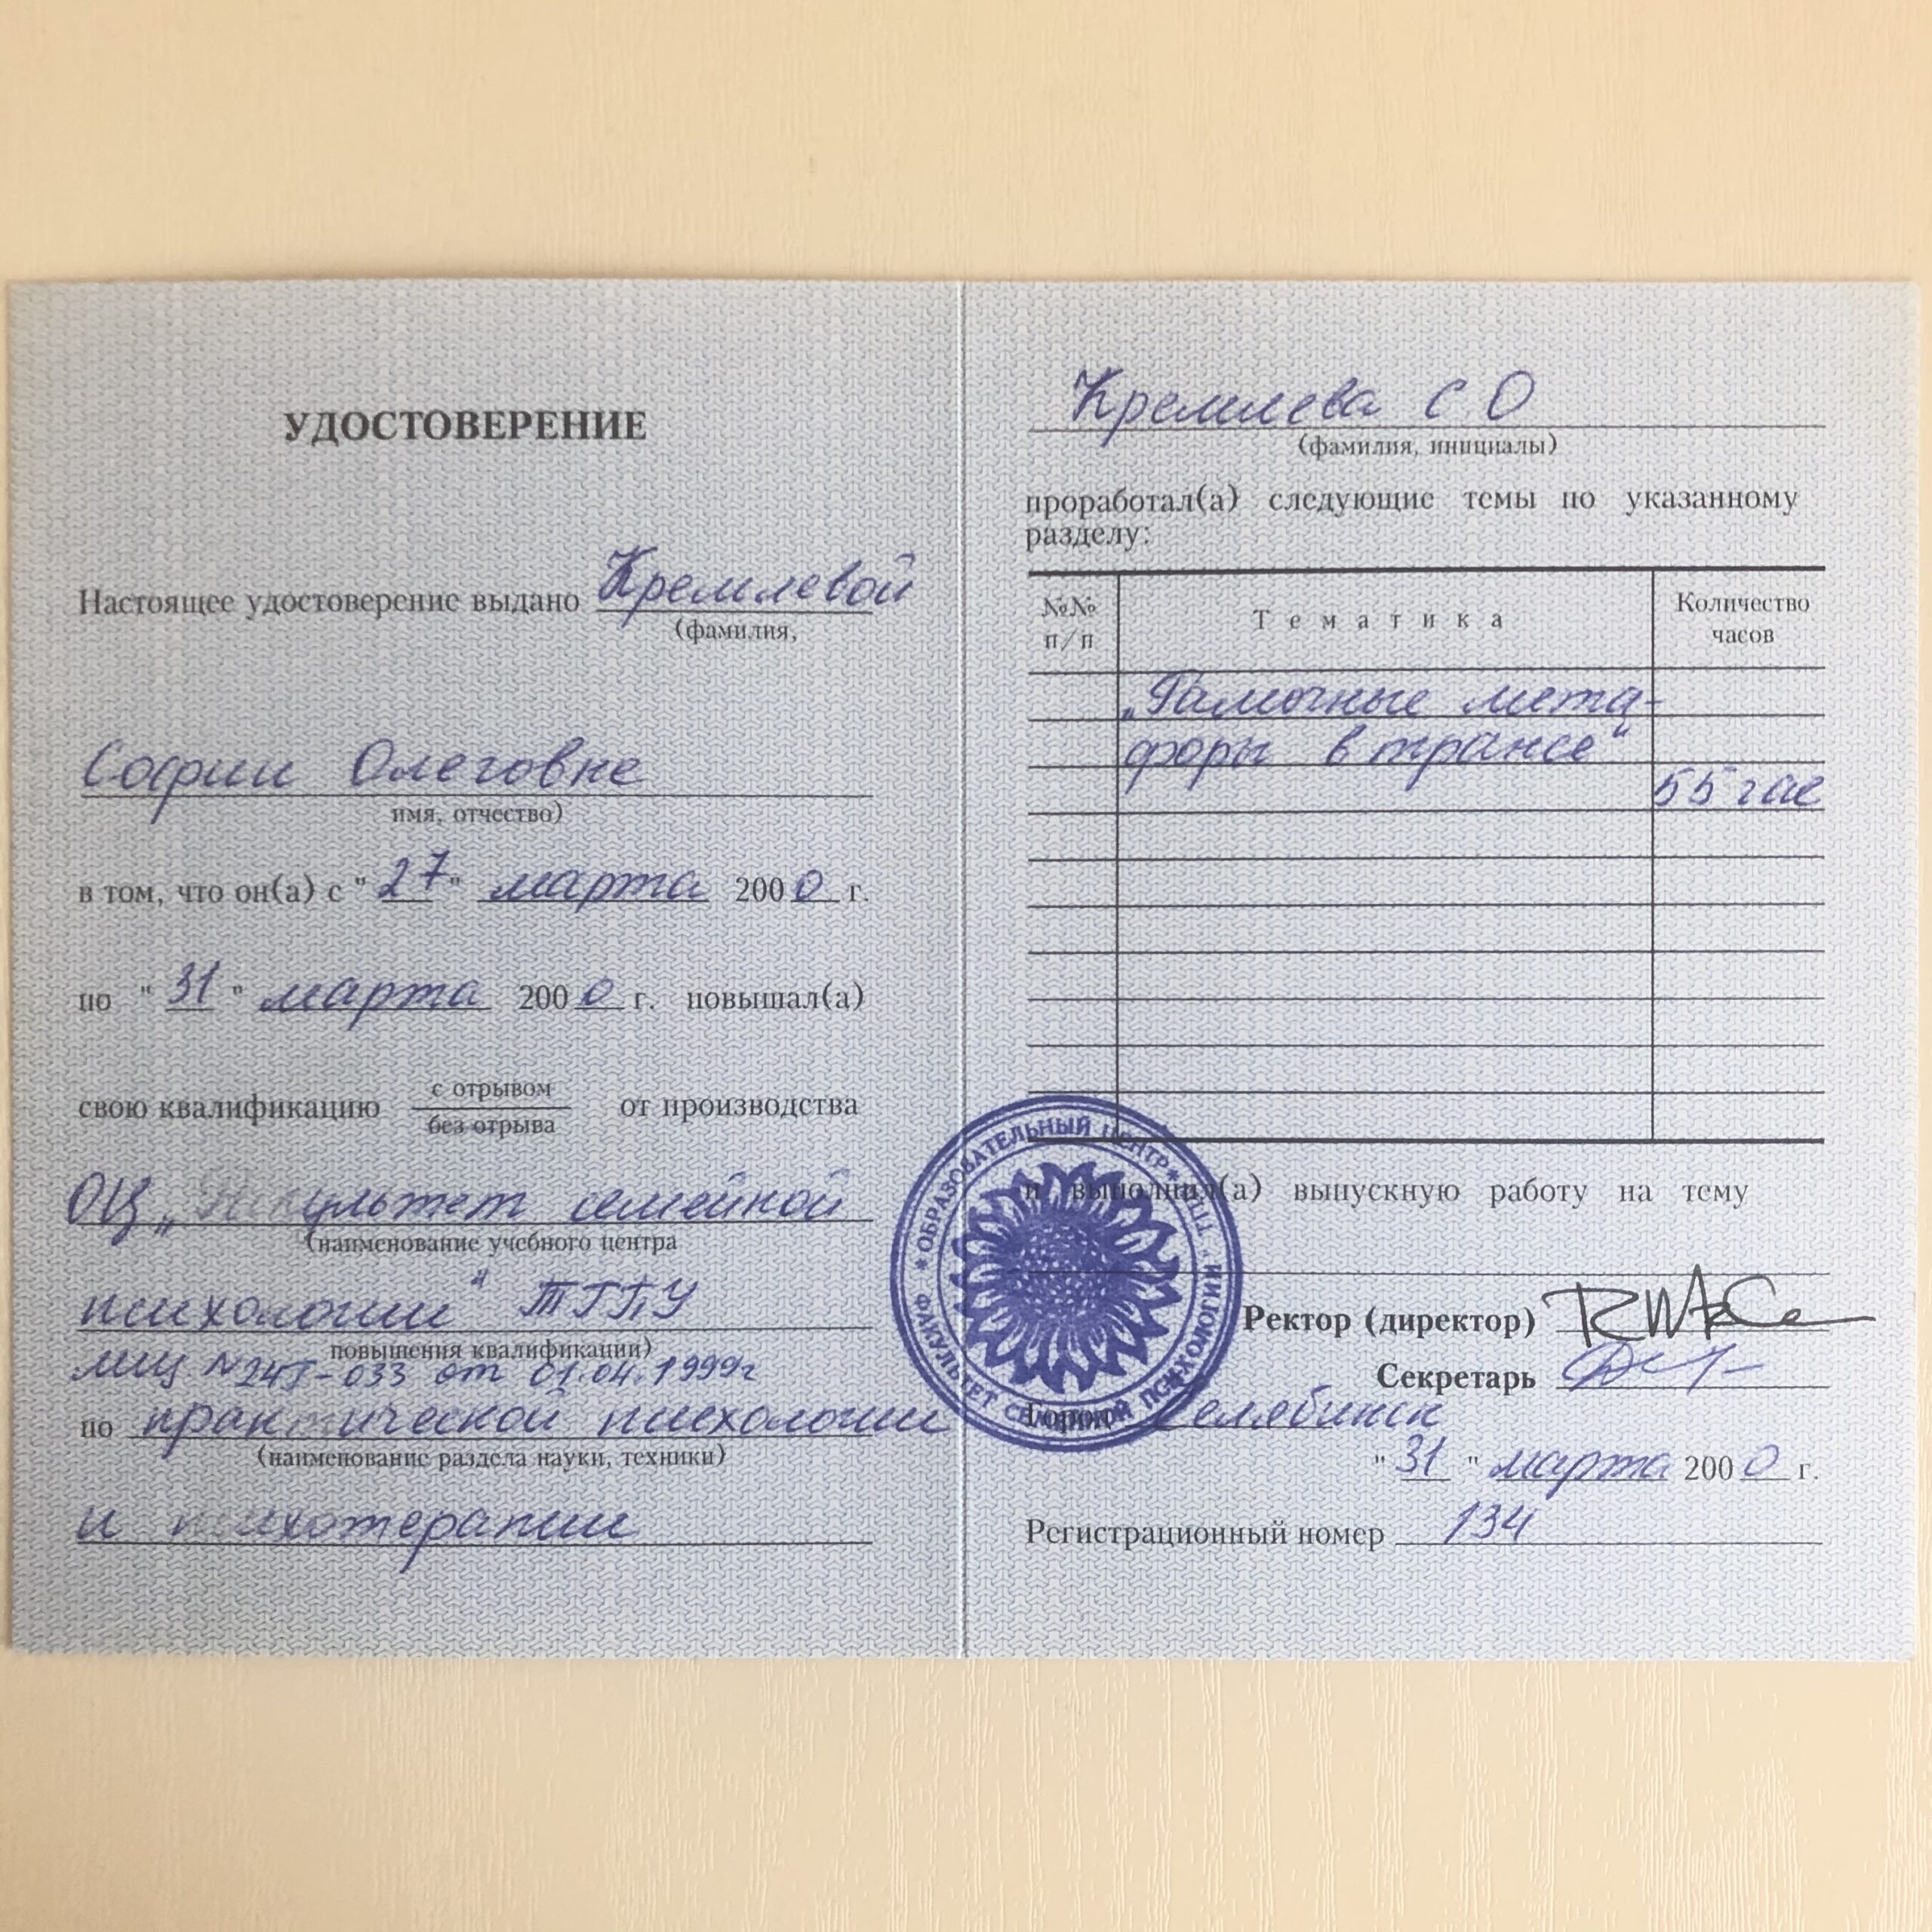 УДОСТОВЕРЕНИЕ
Настоящее удостоверение выдано Кремлевой
(фамилия,
Софии Олеговне
имя, отчество)
в том, что он(а) с "27" марта 2000 г.
по "31" марта 2000 г. повышал(а)
свою квалификацию с отрывом
без отрыва от производства
ОЦ „Факультет семейной
(наименование учебного центра
психологии" ТГПУ
повышения квалификации)
лиц №24Г-033 от 01.04.1999г
по практической психологии
(наименование раздела науки, техники)
и психотерапии
Кремлева С.О
(фамилия, инициалы)
проработал(а) следующие темы по указанному
разделу:
№№
п/п
Тематика
Количество
часов
„Рамочные мета-
форы в трансе"
55 час
и выполнил(а) выпускную работу на тему
Ректор (директор)
Секретарь
Город Челябинск
"31" марта 2000 г.
Регистрационный номер 134
* ОБРАЗОВАТЕЛЬНЫЙ ЦЕНТР *
ФАКУЛЬТЕТ СЕМЕЙНОЙ ПСИХОЛОГИИ